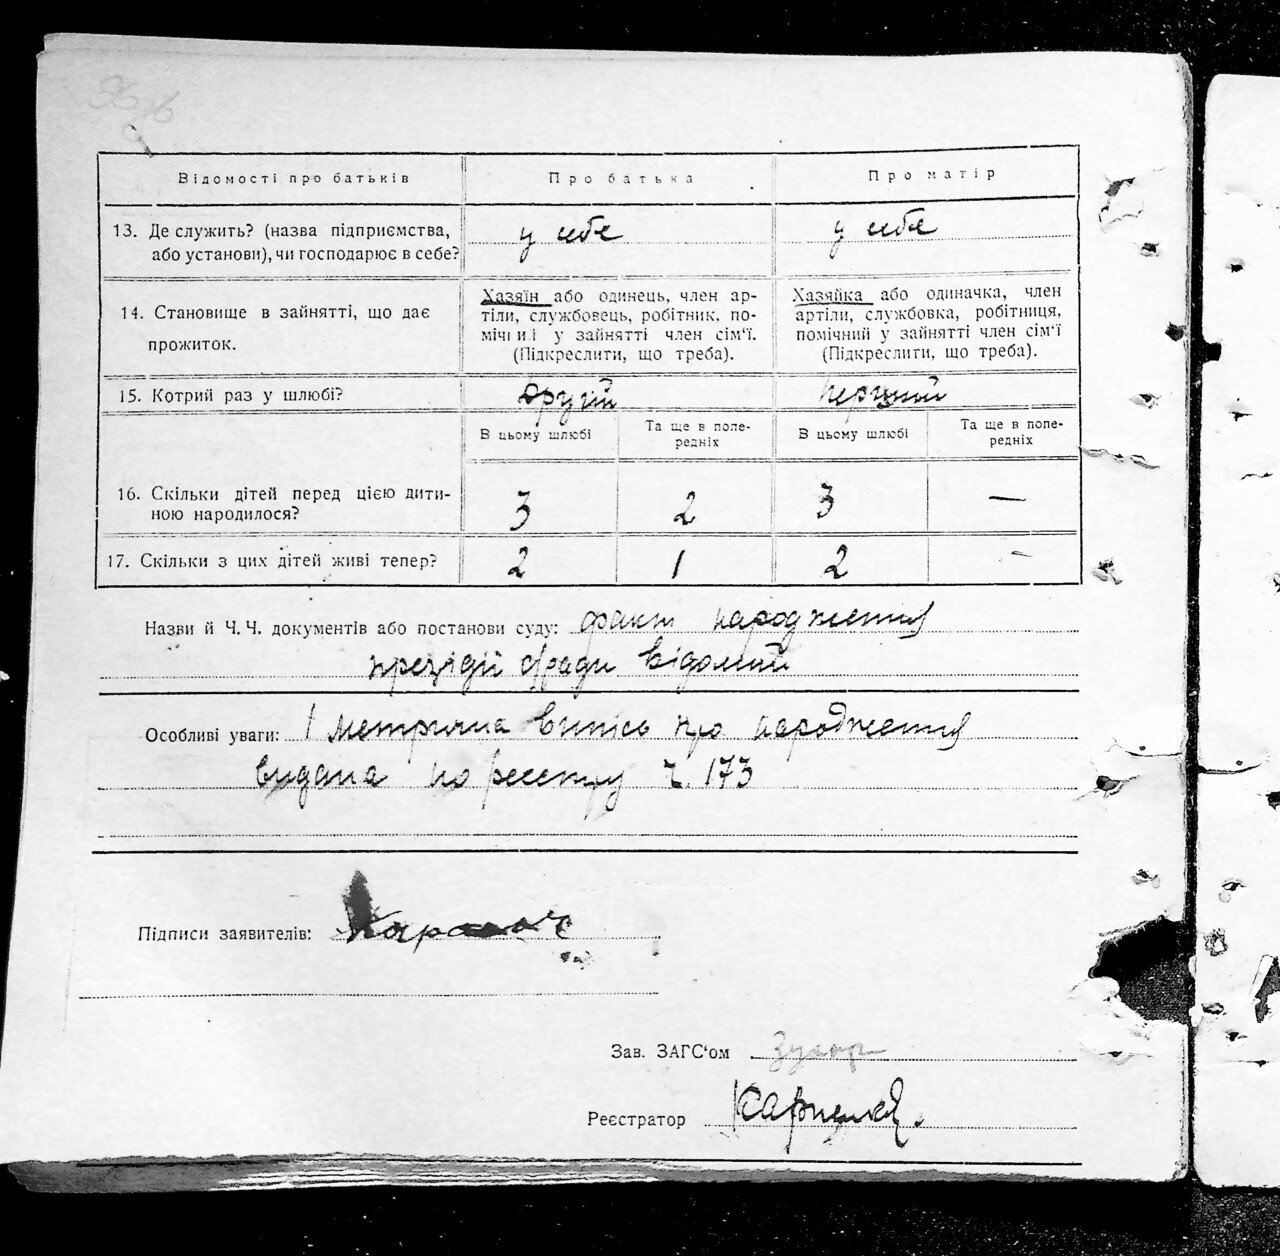 Відомості про батьків
Про батька
Про матір
13. Де служить? (назва підприємства, або установи), чи господарює в себе?
у себе
у себе
14. Становище в зайнятті, що дає прожиток.
Хазяїн або одинець, член артіли, службовець, робітник, помічний у зайнятті член сім'ї. (Підкреслити, що треба).
Хазяйка або одиначка, член артіли, службовка, робітниця, помічний у зайнятті член сім'ї (Підкреслити, що треба).
15. Котрий раз у шлюбі?
другий
перший
В цьому шлюбі
Та ще в попередніх
В цьому шлюбі
Та ще в попередніх
16. Скільки дітей перед цією дитиною народилося?
3
2
3
—
17. Скільки з цих дітей живі тепер?
2
1
2
—
Назви й Ч.Ч. документів або постанови суду: факт народження
президії с/ради відомий
Особливі уваги: 1 метрична випись про народження
видана по реєстру ч. 173
Підписи заявителів:
Зав. ЗАГС'ом
Реєстратор